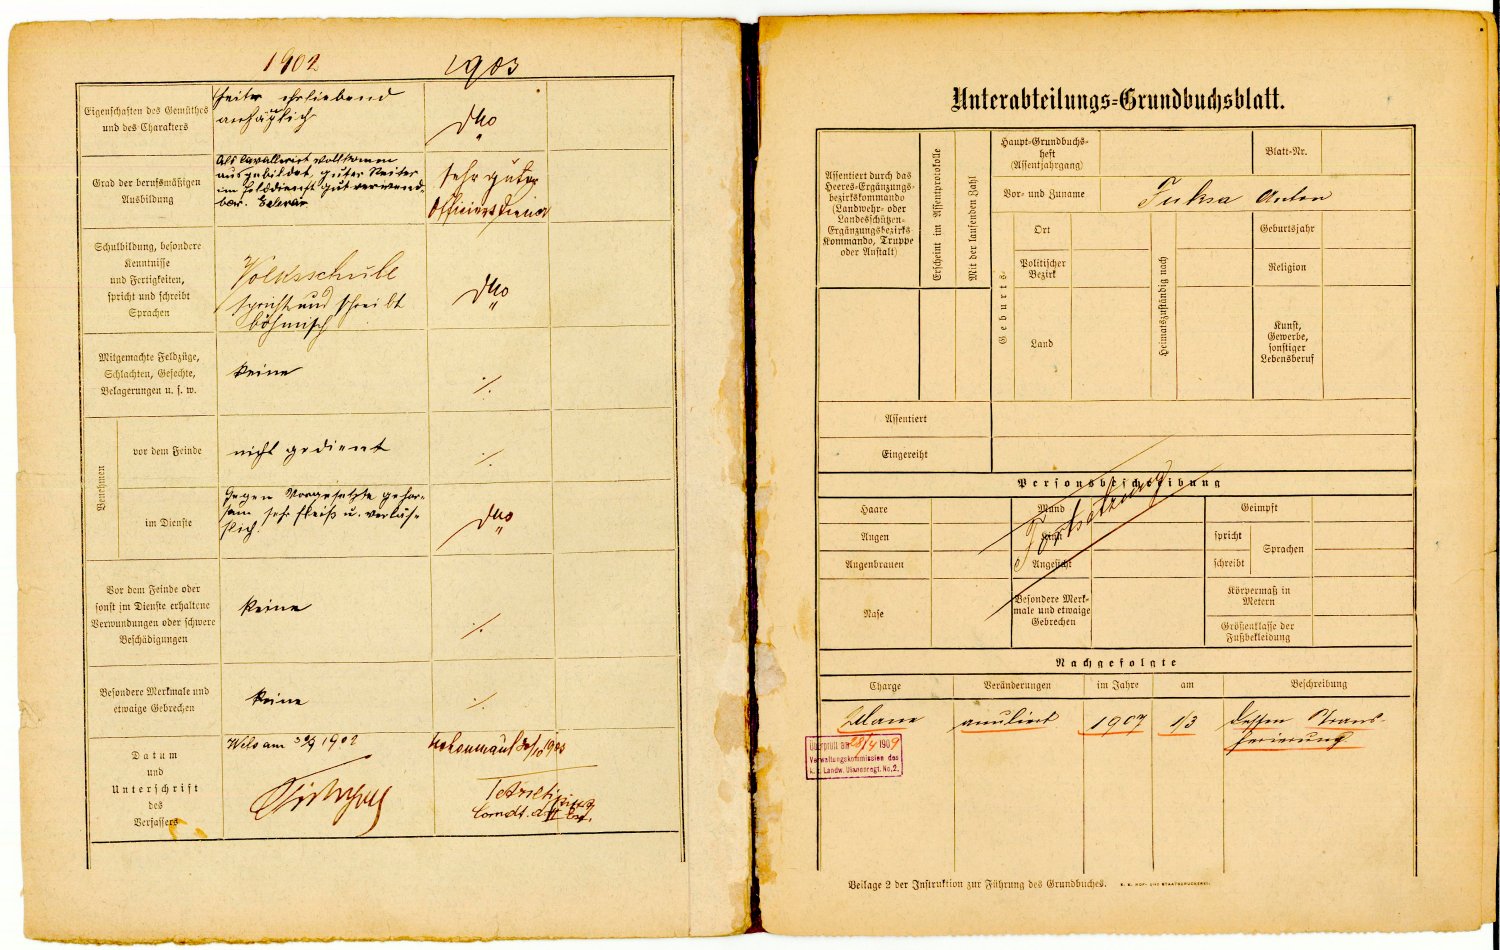 1902 1903
Eigenschaften des Gemüthes
und des Charakters
heiter ehrliebend
anhänglich
dto
"
Grad der berufsmäßigen
Ausbildung
Als Cavallerist vollkomen
ausgebildet, guter Reiter
im Felddienst gut verwend-
bar.
sehr guter
Officiersdiener
Schulbildung, besondere
Kenntnisse
und Fertigkeiten,
spricht und schreibt
Sprachen
Volksschule
spricht und schreibt
böhmisch
dto
"
Mitgemachte Feldzüge,
Schlachten, Gefechte,
Belagerungen u. s. w.
keine
./.
Benehmen
vor dem Feinde
nicht gedient
./.
im Dienste
Gegen Vorgesetzte gehor-
sam sehr fleiß u. verläs-
slich.
dto
"
Vor dem Feinde oder
sonst im Dienste erhaltene
Verwundungen oder schwere
Beschädigungen
keine
./.
Besondere Merkmale und
etwaige Gebrechen
keine
./.
Datum
und
Unterschrift
des
Verfassers
Wels am 30/9 1902
Hohenmauth 30/10 1903
Comdt. d.
Unterabteilungs-Grundbuchsblatt.
Assentiert durch das
Heeres-Ergänzungs-
bezirkskommando
(Landwehr- oder
Landesschützen-
Ergänzungsbezirks-
Kommando, Truppe
oder Anstalt)
Erscheint im Assentprotokolle
Mit der laufenden Zahl
Haupt-Grundbuchs-
heft
(Assentjahrgang)
Blatt-Nr.
Vor- und Zuname
Tuksa Anton
Geburts-
Ort
Politischer
Bezirk
Land
Heimatszuständig nach
Geburtsjahr
Religion
Kunst,
Gewerbe,
sonstiger
Lebensberuf
Assentiert
Eingereiht
Personsbeschreibung
Haare
Augen
Augenbrauen
Nase
Mund
Kinn
Angesicht
Besondere Merk-
male und etwaige
Gebrechen
Fortsetzung
Geimpft
spricht
schreibt
Sprachen
Körpermaß in
Metern
Größenklasse der
Fußbekleidung
Nachgefolgte
Charge Veränderungen im Jahre am Beschreibung
Ulane anuliert 1907 1/3 dessen Trans-
ferierung
Überprüft am 28/4 1909
Verwaltungskommission des
k. k. Landw. Ulanenregt. No. 2.
Beilage 2 der Instruktion zur Führung des Grundbuches. K. K. HOF- UND STAATSDRUCKEREI.